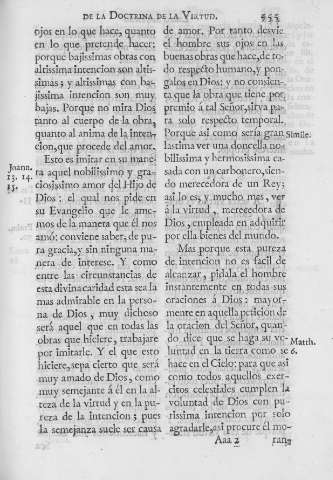 DE LA DOCTRINA DE LA VIRTUD. 955
ojos en lo que hace, quanto
en lo que pretende hacer;
porque bajissimas obras con
altissima intencion son altis-
simas; y altissimas con ba-
jissima intencion son muy
bajas. Porque no mira Dios
tanto al cuerpo de la obra,
quanto al anima de la inten-
cion, que procede del amor.
Esto es imitar en su mane-
ra aquel nobilissimo y gra-
ciosissimo amor del Hijo de
Dios: el qual nos pide en
su Evangelio que le ame-
mos de la manera que él nos
amó: conviene saber, de pu-
ra gracia, y sin ninguna ma-
nera de interese. Y como
entre las circunstancias de
esta divina caridad esta sea la
mas admirable en la perso-
na de Dios, muy dichoso
será aquel que en todas las
obras que hiciere, trabajare
por imitarle. Y el que esto
hiciere, sepa cierto que será
muy amado de Dios, como
muy semejante á él en la al-
teza de la virtud y en la pu-
reza de la intencion; pues
la semejanza suele ser causa
Joann.
13. 14
15.
de amor. Por tanto desvie
el hombre sus ojos en las
buenas obras que hace, de to-
do respecto humano, y pon-
galos en Dios; y no consien-
ta que la obra que tiene por
premio á tal Señor, sirva pa-
ra solo respecto temporal.
Porque asi como sería gran
lastima ver una doncella no-
bilissima y hermosissima ca-
sada con un carbonero, sien-
do merecedora de un Rey;
asi lo es, y mucho mas, ver
á la virtud, merecedora de
Dios, empleada en adquirir
por ella bienes del mundo.
Mas porque esta pureza
de intencion no es facil de
alcanzar, pidala el hombre
instantemente en todas sus
oraciones á Dios: mayor-
mente en aquella peticion de
la oracion del Señor, quan-
do dice que se haga su vo-
luntad en la tierra como se
hace en el Cielo: para que asi
como todos aquellos exer-
citos celestiales cumplen la
voluntad de Dios con pu-
rissima intencion por solo
agradarle, asi procure él mo-
Simile.
Matth.
6.
Aaa 2
ran-